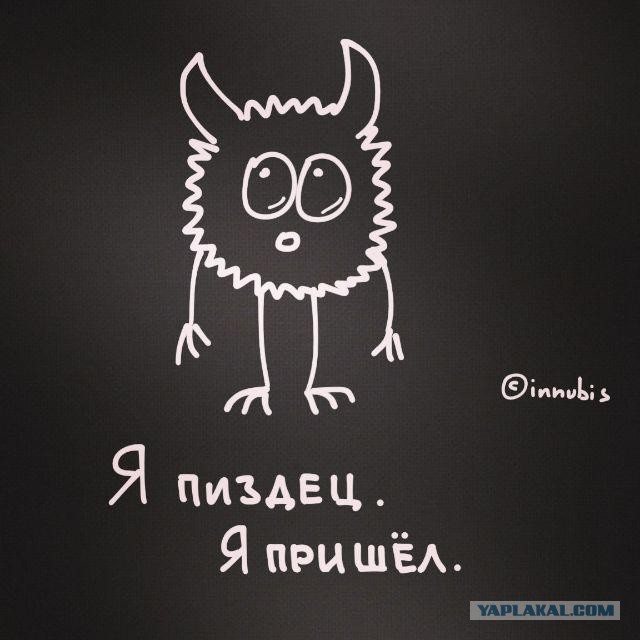 ©innubis
Я пиздец.
Я пришёл.
YAPLAKAL.COM